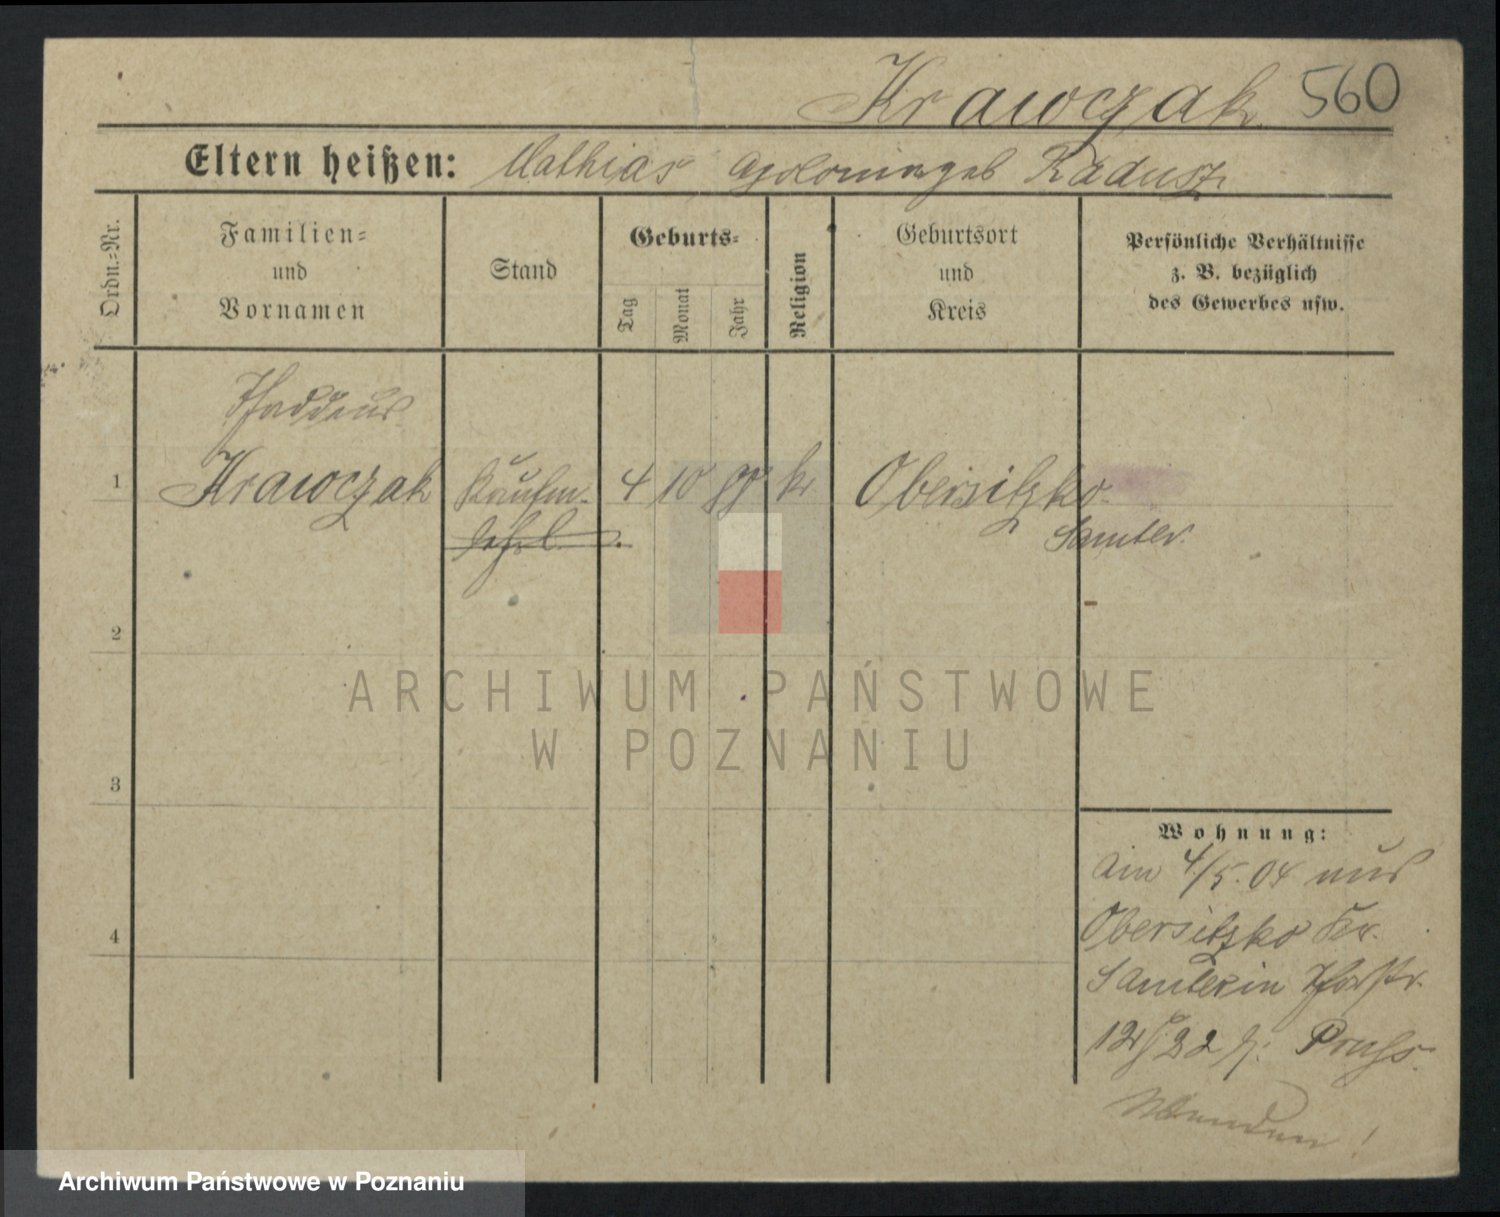 Krawczak 560
Eltern heißen: Mathias Apolonia geb Radusz
Ordn.-Nr.
Familien-
und
Vornamen
Stand
Geburts-
Tag
Monat
Jahr
Religion
Geburtsort
und
Kreis
Persönliche Verhältnisse
z. B. bezüglich
des Gewerbes usw.
Thaddeus
1 Krawczak Kaufm. 4 10 88 k. Obersitzko
Lehrl. Samter.
2
3
4
Wohnung:
Am 4/5. 04 aus
Obersitzko Kr.
Samter in
12/ 22
Wenden!
ARCHIWUM PAŃSTWOWE
W POZNANIU
Archiwum Państwowe w Poznaniu